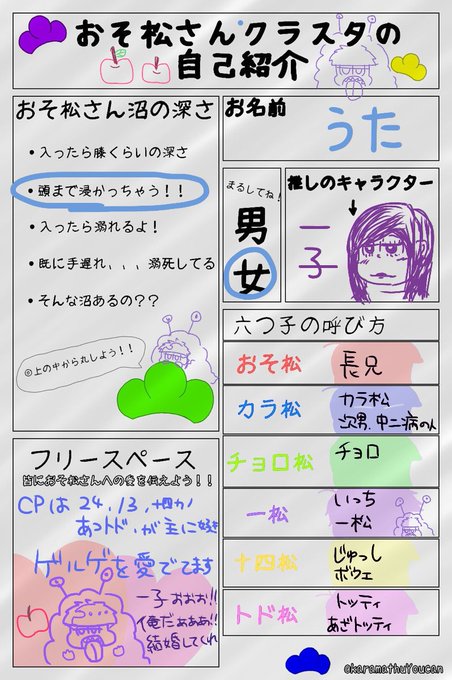 おそ松さんクラスタの
自己紹介
おそ松さん沼の深さ
•入ったら膝くらいの深さ
•頭まで浸かっちゃう!!
•入ったら溺れるよ!
•既に手遅れ、、、溺死してる
•そんな沼あるの??
◎上の中から丸しよう!!
お名前
うた
まるしてね!
男
女
推しのキャラクター
一子
六つ子の呼び方
おそ松 長兄
カラ松 カラ松
次男、中二病の人
チョロ松 チョロ
一松 いっち
一松
十四松 じゅっし
ボウェ
トド松 トッティ
あざトッティ
フリースペース
皆におそ松さんへの愛を伝えよう!!
CPは24、13、
が主に好き
ゲルゲを愛でてます
一子おおお!!
俺だぁぁぁ!!
結婚してくれ
@karamathuYoucan